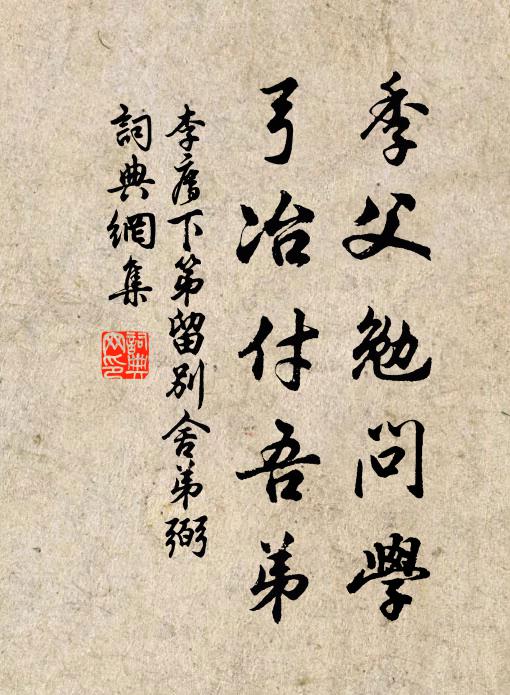 季父勉問學
弓冶付吾弟
李廌下第留別舍弟弼
詞典網集
詞典網印